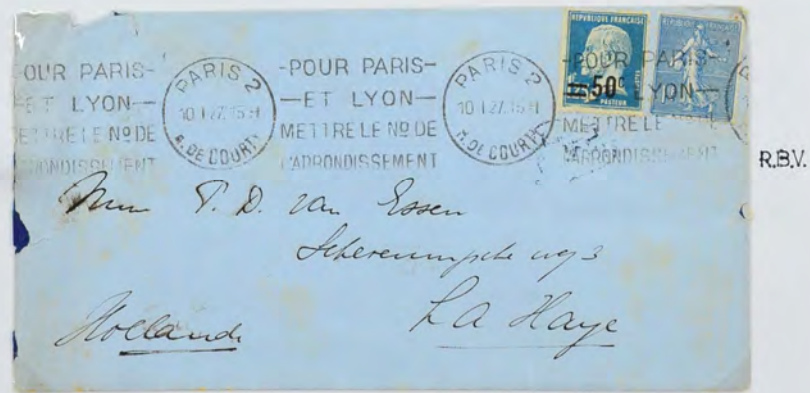 POUR PARIS-
ET LYON-
METTRE LE Nº DE
ARRONDISSEMENT
PARIS 2
10 I 27. 15 H
R. DE COURTY
-POUR PARIS-
-ET LYON-
METTRE LE Nº DE
L'ARRONDISSEMENT
PARIS 2
10 I 27. 15 H
R. DE COURTY
-POUR PARIS-
LYON-
METTRE LE Nº DE
L'ARRONDISSEMENT
REPUBLIQUE FRANÇAISE
=50c
PASTEUR
POSTES
REPUBLIQUE FRANÇAISE
R.B.V.
T. D. van Essen
weg 3
La Haye
Hollande